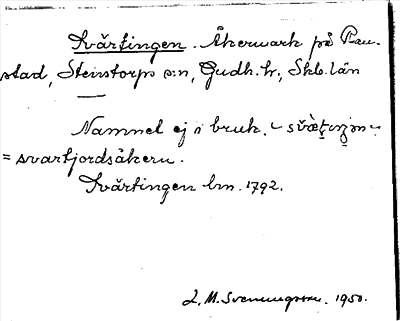 Svärtingen. Åkermark på Rau-
stad, Stenstorps sn, Gudh. hr, Skb. län
Namnet ej i bruk. -
= svartjordsåkern.
Svärtingen lm. 1792.
L. M. Svenungsson. 1950.